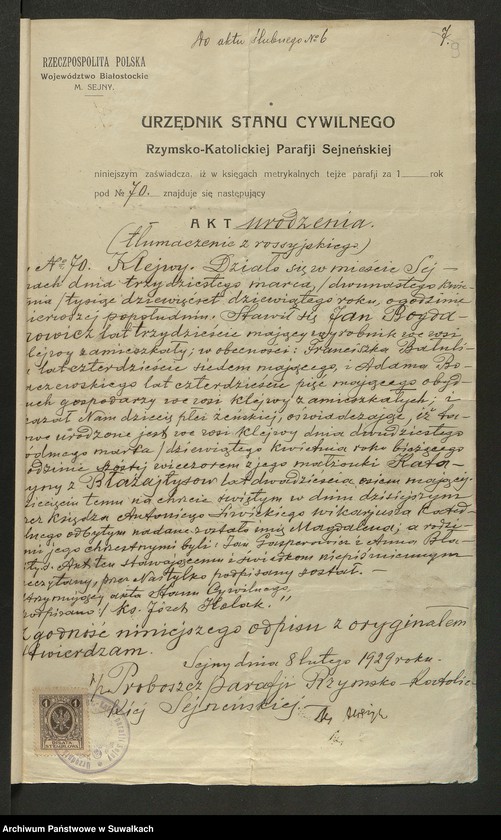 Do aktu ślubnego № 6
7.
9
RZECZPOSPOLITA POLSKA
Województwo Białostockie
M. SEJNY.
URZĘDNIK STANU CYWILNEGO
Rzymsko-Katolickiej Parafji Sejneńskiej
niniejszym zaświadcza, iż w księgach metrykalnych tejże parafji za 1 rok
pod № 70. znajduje się następujący
AKT urodzenia.
(tłumaczenie z rossyjskiego)
№ 70. Klejwy. Działo się w mieście Sej-
nach dnia trzydziestego marca / dwunastego kwie
nia / tysiąc dziewięćset dziewiątego roku, o godzinie
popołudniu. Stawił się Jan Bogda-
nowicz lat trzydzieście mający wyrobnik we wsi
Klejwy zamieszkały; w obecności: Franciszka
lat czterdzieście siedem mającego, i Adama
czewskiego lat czterdzieście pięć mającego obyd-
uch gospodarzy we wsi Klejwy zamieszkałych; i
kazał Nam dziecię płci żeńskiej, oświadczając, iż ta-
kowe urodzone jest we wsi Klejwy dnia dwudziestego
siódmego marca / dziewiątego kwietnia roku bieżącego
godzinie szóstej wieczorem z jego małżonki Kata-
rzyny z Błażajtysów lat dwadzieścia osiem mającej.
Dziecięciu temu na chrzcie świętym w dniu dzisiejszym
przez księdza Antoniego wikarjusza Kated-
ralnego odbytym nadane zostało imię Magdalena, a rodzi-
cami jego chrzestnymi byli: Jan i Anna Bła-
Akt ten stawającemu i świadkom niepiśmiennym
przeczytany, przez Nas tylko podpisany został.-
Utrzymujący akta Stanu Cywilnego
podpisano / ks. Józef
Zgodność niniejszego odpisu z oryginałem
stwierdzam.
Sejny dnia 8 lutego 1929 roku.
Proboszcz parafji Rzymsko-Katolic-
kiej Sejneńskiej.-